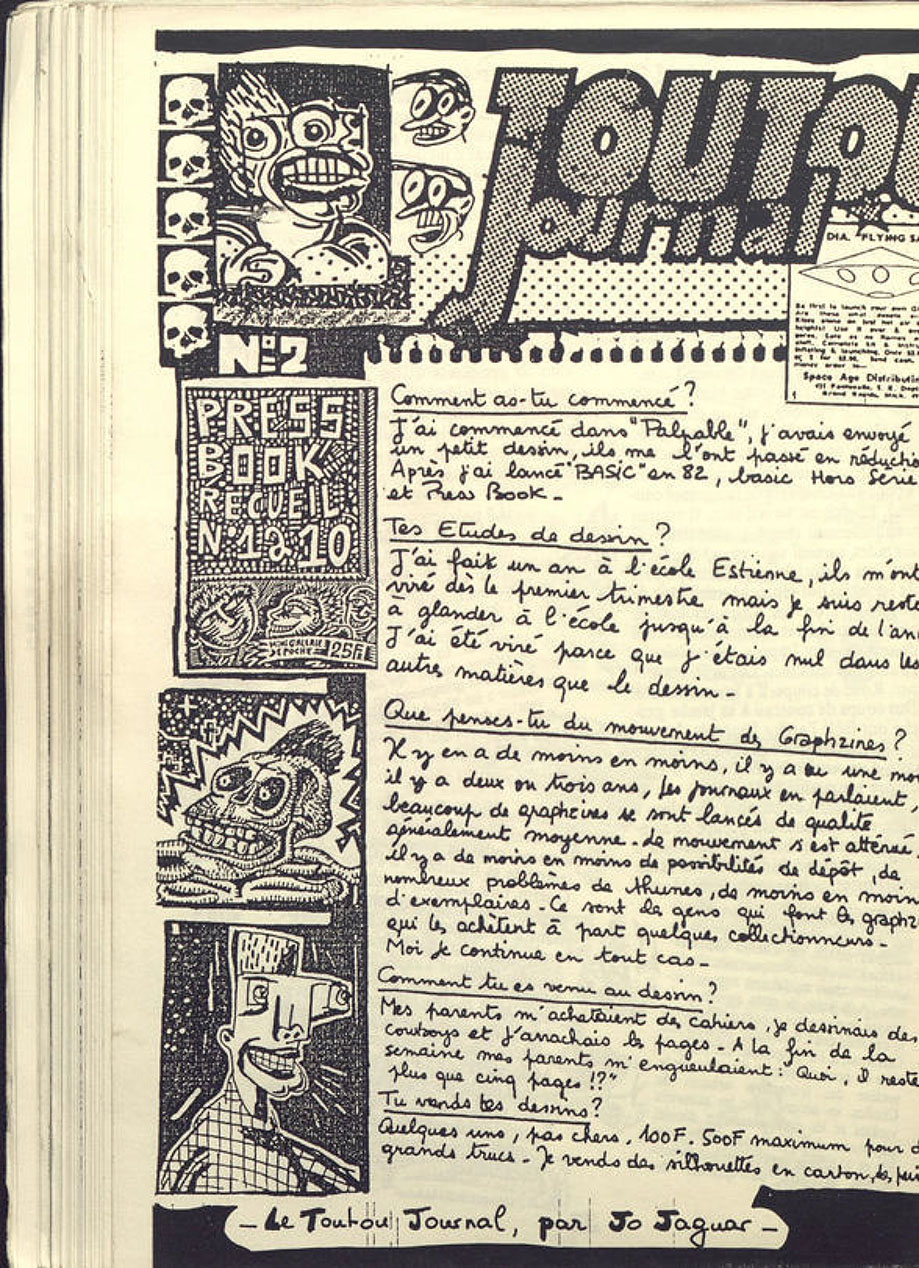 TOUTOU
Journal
DIA. "FLYING SA
Be first to launch your own
Space Age Distributin
Grand Rapids, Mich.
N:2
PRESS
BOOK
RECUEIL
N°1 à 10
MINI GALLERIE
DE POCHE
25F
Comment as-tu commencé?
J'ai commencé dans "Palpable", j'avais envoyé
un petit dessin, ils me l'ont passé en réductio
Après j'ai lancé "BASIC" en 82, basic Hors Série
et Press Book -
Tes Etudes de dessin?
J'ai fait un an à l'école Estienne, ils m'ont
viré dès le premier trimestre mais je suis resté
à glander à l'école jusqu'à la fin de l'an
J'ai été viré parce que j'étais nul dans les
autres matières que le dessin -
Que penses-tu du mouvement des Graphzines?
Il y en a de moins en moins, il y a eu une mo
il y a deux ou trois ans, les journaux en parlaient,
beaucoup de graphzines se sont lancés de qualité
généralement moyenne - Le mouvement s'est attéruté.
il y a de moins en moins de possibilités de dépôt, de
nombreux problèmes de thunes, de moins en moins
d'exemplaires - Ce sont des gens qui font les graphz
qui les achètent à part quelques collectionneurs -
Moi je continue en tout cas -
Comment tu es venu au dessin?
Mes parents m'achetaient des cahiers, je dessinais des
cowboys et j'arrachais les pages - A la fin de la
semaine mes parents m'engueulaient: "Quoi, il reste
plus que cinq pages!?"
Tu vends tes dessins?
Quelques uns, pas chers, 100F. 500F maximum pour d
grands trucs - Je vends des silhouettes en carton, des
- Le Toutou Journal, par Jo Jaguar -